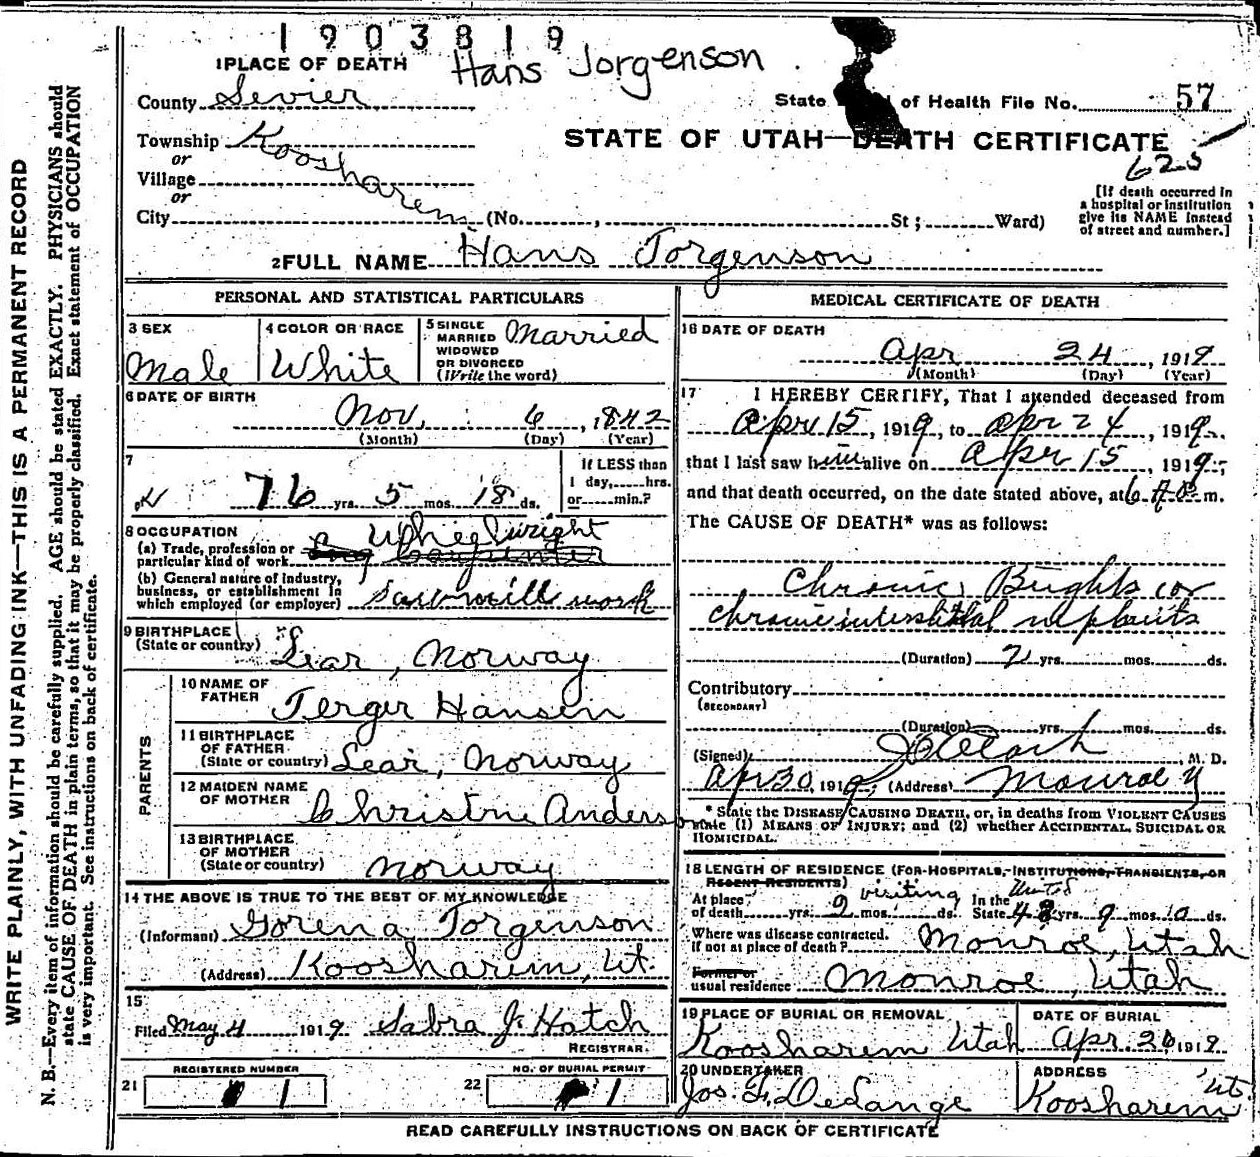 1903819
Hans Jorgenson
1 PLACE OF DEATH
County Sevier
State of Health File No. 57
Township Koosharem
or
Village
or
City (No. , St; Ward)
STATE OF UTAH—DEATH CERTIFICATE
625
[If death occurred in
a hospital or institution
give its NAME instead
of street and number.]
2 FULL NAME Hans Jorgenson
PERSONAL AND STATISTICAL PARTICULARS
3 SEX
Male
4 COLOR OR RACE
White
5 SINGLE
MARRIED
WIDOWED
OR DIVORCED
(Write the word)
Married
6 DATE OF BIRTH
Nov. 6, 1842
(Month) (Day) (Year)
7
76 yrs. 5 mos. 18 ds.
If LESS than
1 day, hrs.
or min.?
8 OCCUPATION
(a) Trade, profession or
particular kind of work Wheelwright
Carpenter
(b) General nature of industry,
business, or establishment in
which employed (or employer) Sawmill work
9 BIRTHPLACE
(State or country) Lear, Norway
PARENTS
10 NAME OF
FATHER Jerger Hansen
11 BIRTHPLACE
OF FATHER
(State or country) Lear, Norway
12 MAIDEN NAME
OF MOTHER Christine Anderson
13 BIRTHPLACE
OF MOTHER
(State or country) Norway
14 THE ABOVE IS TRUE TO THE BEST OF MY KNOWLEDGE
(Informant) Gorena Jorgenson
(Address) Koosharem, Ut.
15
Filed May 4 1919. Sabra J. Hatch
REGISTRAR.
REGISTERED NUMBER
21 1
NO. OF BURIAL PERMIT
22 1
MEDICAL CERTIFICATE OF DEATH
16 DATE OF DEATH
Apr 24, 1919
(Month) (Day) (Year)
17 I HEREBY CERTIFY, That I attended deceased from
Apr 15, 1919, to Apr 24, 1919.
that I last saw him alive on Apr 15, 1919;
and that death occurred, on the date stated above, at 6 A.m.
The CAUSE OF DEATH* was as follows:
Chronic Brights or
chronic interstitial nephritis
(Duration) 2 yrs. mos. ds.
Contributory
(SECONDARY)
(Duration) yrs. mos. ds.
(Signed) M. D.
Apr 30, 1919; (Address) Monroe
* State the DISEASE CAUSING DEATH, or, in deaths from VIOLENT CAUSES
state (1) MEANS OF INJURY; and (2) whether ACCIDENTAL, SUICIDAL OR
HOMICIDAL.
18 LENGTH OF RESIDENCE (FOR HOSPITALS, INSTITUTIONS, TRANSIENTS, OR
RECENT RESIDENTS)
At place visiting In the United
of death yrs. 2 mos. ds. State 48 yrs. 9 mos. 10 ds.
Where was disease contracted,
if not at place of death? Monroe, Utah
Former or
usual residence Monroe, Utah
19 PLACE OF BURIAL OR REMOVAL
Koosharem Utah
DATE OF BURIAL
Apr. 26 1919
20 UNDERTAKER
ADDRESS
Koosharem Ut.
READ CAREFULLY INSTRUCTIONS ON BACK OF CERTIFICATE
WRITE PLAINLY, WITH UNFADING INK—THIS IS A PERMANENT RECORD
N. B.—Every item of information should be carefully supplied. AGE should be stated EXACTLY. PHYSICIANS should
state CAUSE OF DEATH in plain terms, so that it may be properly classified. Exact statement of OCCUPATION
is very important. See instructions on back of certificate.